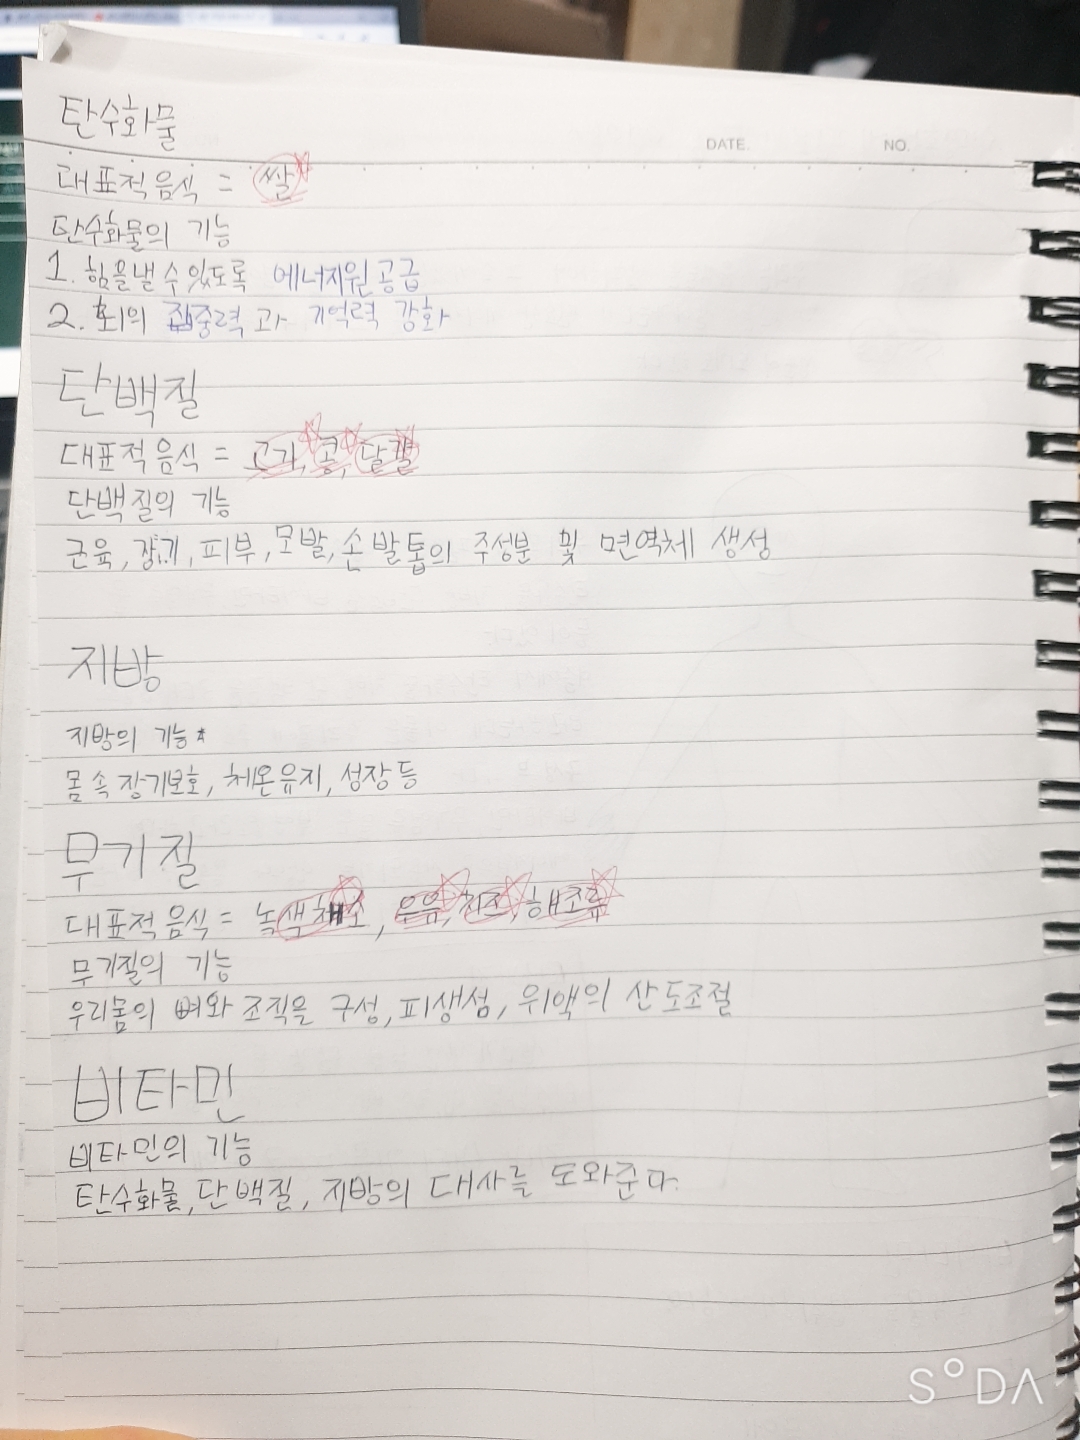 탄수화물
DATE. NO.
대표적 음식 = 쌀
탄수화물의 기능
1. 힘을낼 수 있도록 에너지원 공급
2. 뇌의 집중력 과 기억력 강화
단백질
대표적 음식 = 고기, 콩, 달걀
단백질의 기능
근육, 장기, 피부, 모발, 손 발톱의 주성분 및 면역체 생성
지방
지방의 기능
몸 속 장기보호, 체온유지, 성장 등
무기질
대표적 음식 = 녹색채소, 우유, 치즈, 해조류
무기질의 기능
우리몸의 뼈와 조직을 구성, 피생성, 위액의 산도조절
비타민
비타민의 기능
탄수화물, 단백질, 지방의 대사를 도와준다.
SODA